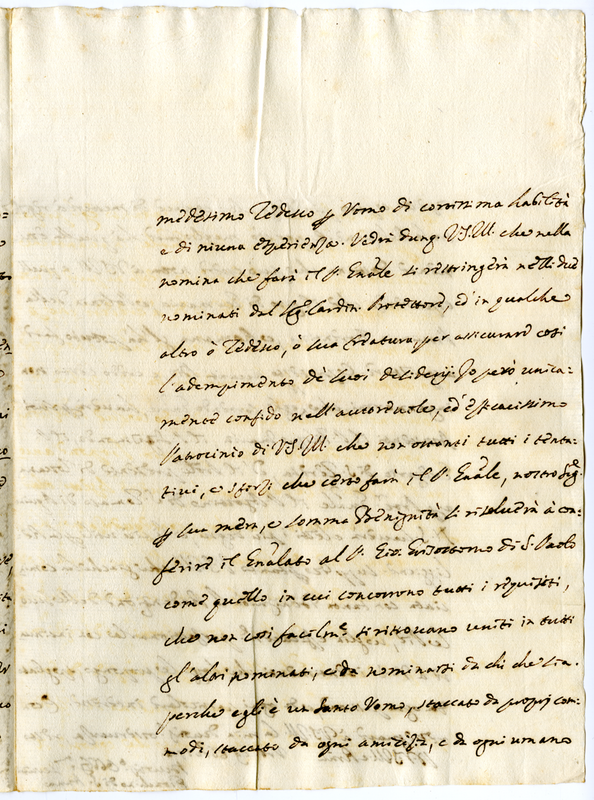 medesimo Tedesco p Vomo di cortissima habilità
e di niuna esperienza. Vedrà dunq. V.S.Ill. che nella
nomina che farà il P. Gnãle si restringerà nelli due
nominati dal Sig. Cardin. Protettore, ed in qualche
altro ò Tedesco, ò sua Creatura, per assicurare così
l'adempimento de suoi desiderij. Io però unica-
mente confido nell'autorevole, ed efficacissimo
Patrocinio di V.S.Ill. che non ostanti tutti i tenta-
tivi, e sforzi che certo farà il P. Gnãle, nostro Sig.re
p sua mera, e somma Benignità si risoluerà à con-
ferire il Gnãlato al P. Gio. Grisostomo di S. Paolo
come quello in cui concorrono tutti i requisiti,
che non così facilm.e si ritrovano uniti in tutti
gl'altri nominati, e da nominarsi da chi che sia.
perche egli è un santo Vomo, staccato da proprj com-
modi, staccato da ogni amicizia, e da ogni umano